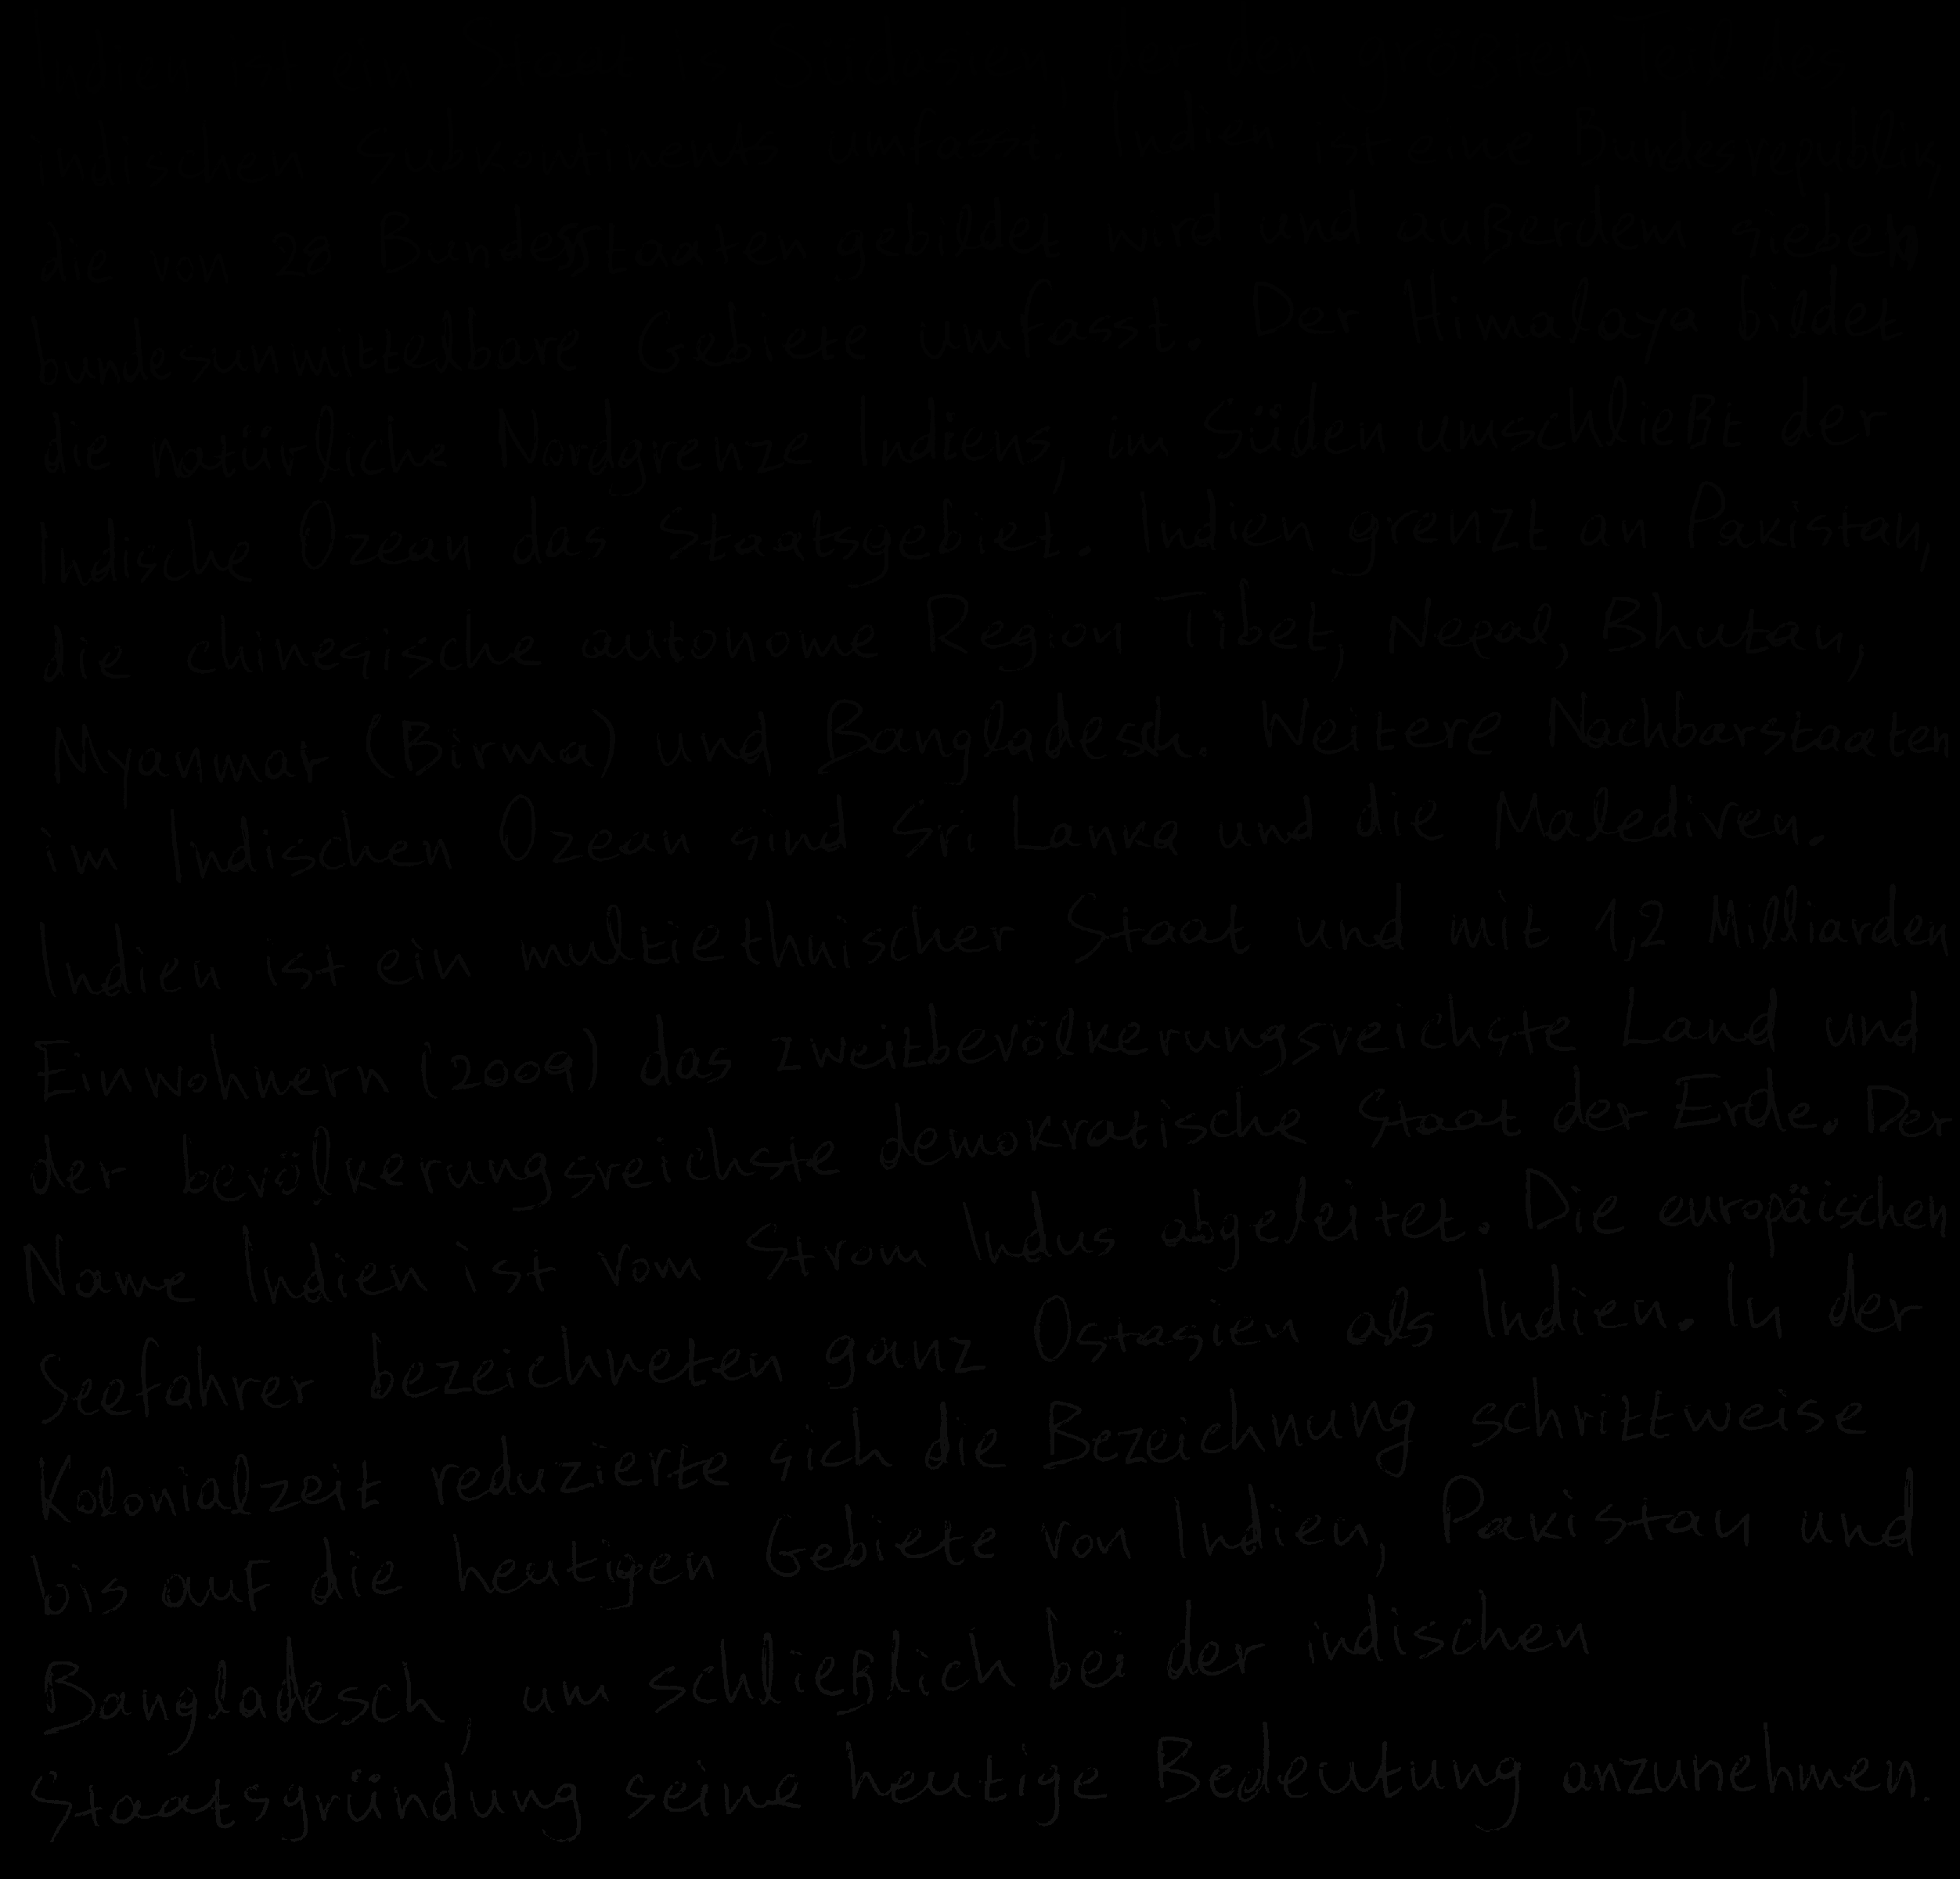 indischen Subkontinents umfasst. Indien ist eine Bundesrepublik,
die von 28 Bundesstaaten gebildet wird und außerdem sieben
bundesunmittelbare Gebiete umfasst. Der Himalaya bildet
die natürliche Nordgrenze Indiens, im Süden umschließt der
Indische Ozean das Staatsgebiet. Indien grenzt an Pakistan,
die chinesische autonome Region Tibet, Nepal, Bhutan,
Myanmar (Birma) und Bangladesch. Weitere Nachbarstaaten
im Indischen Ozean sind Sri Lanka und die Malediven.
Indien ist ein multiethnischer Staat und mit 1,2 Milliarden
Einwohnern (2009) das zweitbevölkerungsreichste Land und
der bevölkerungsreichste demokratische Staat der Erde. Der
Name Indien ist vom Strom Indus abgeleitet. Die europäischen
Seefahrer bezeichneten ganz Ostasien als Indien. In der
Kolonialzeit reduzierte sich die Bezeichnung schrittweise
bis auf die heutigen Gebiete von Indien, Pakistan und
Bangladesch, um schließlich bei der indischen
Staatsgründung seine heutige Bedeutung anzunehmen.